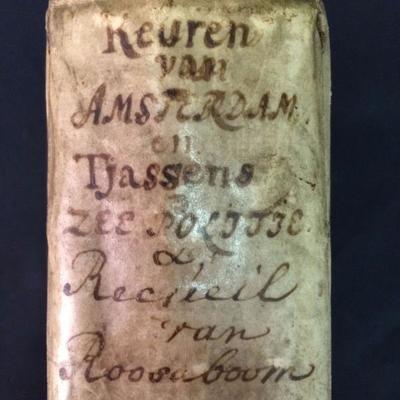 Keuren
van
AMSTERDAM.
en
Tjassens
ZEE POLITIE.
&
Recueil
van
Rooseboom